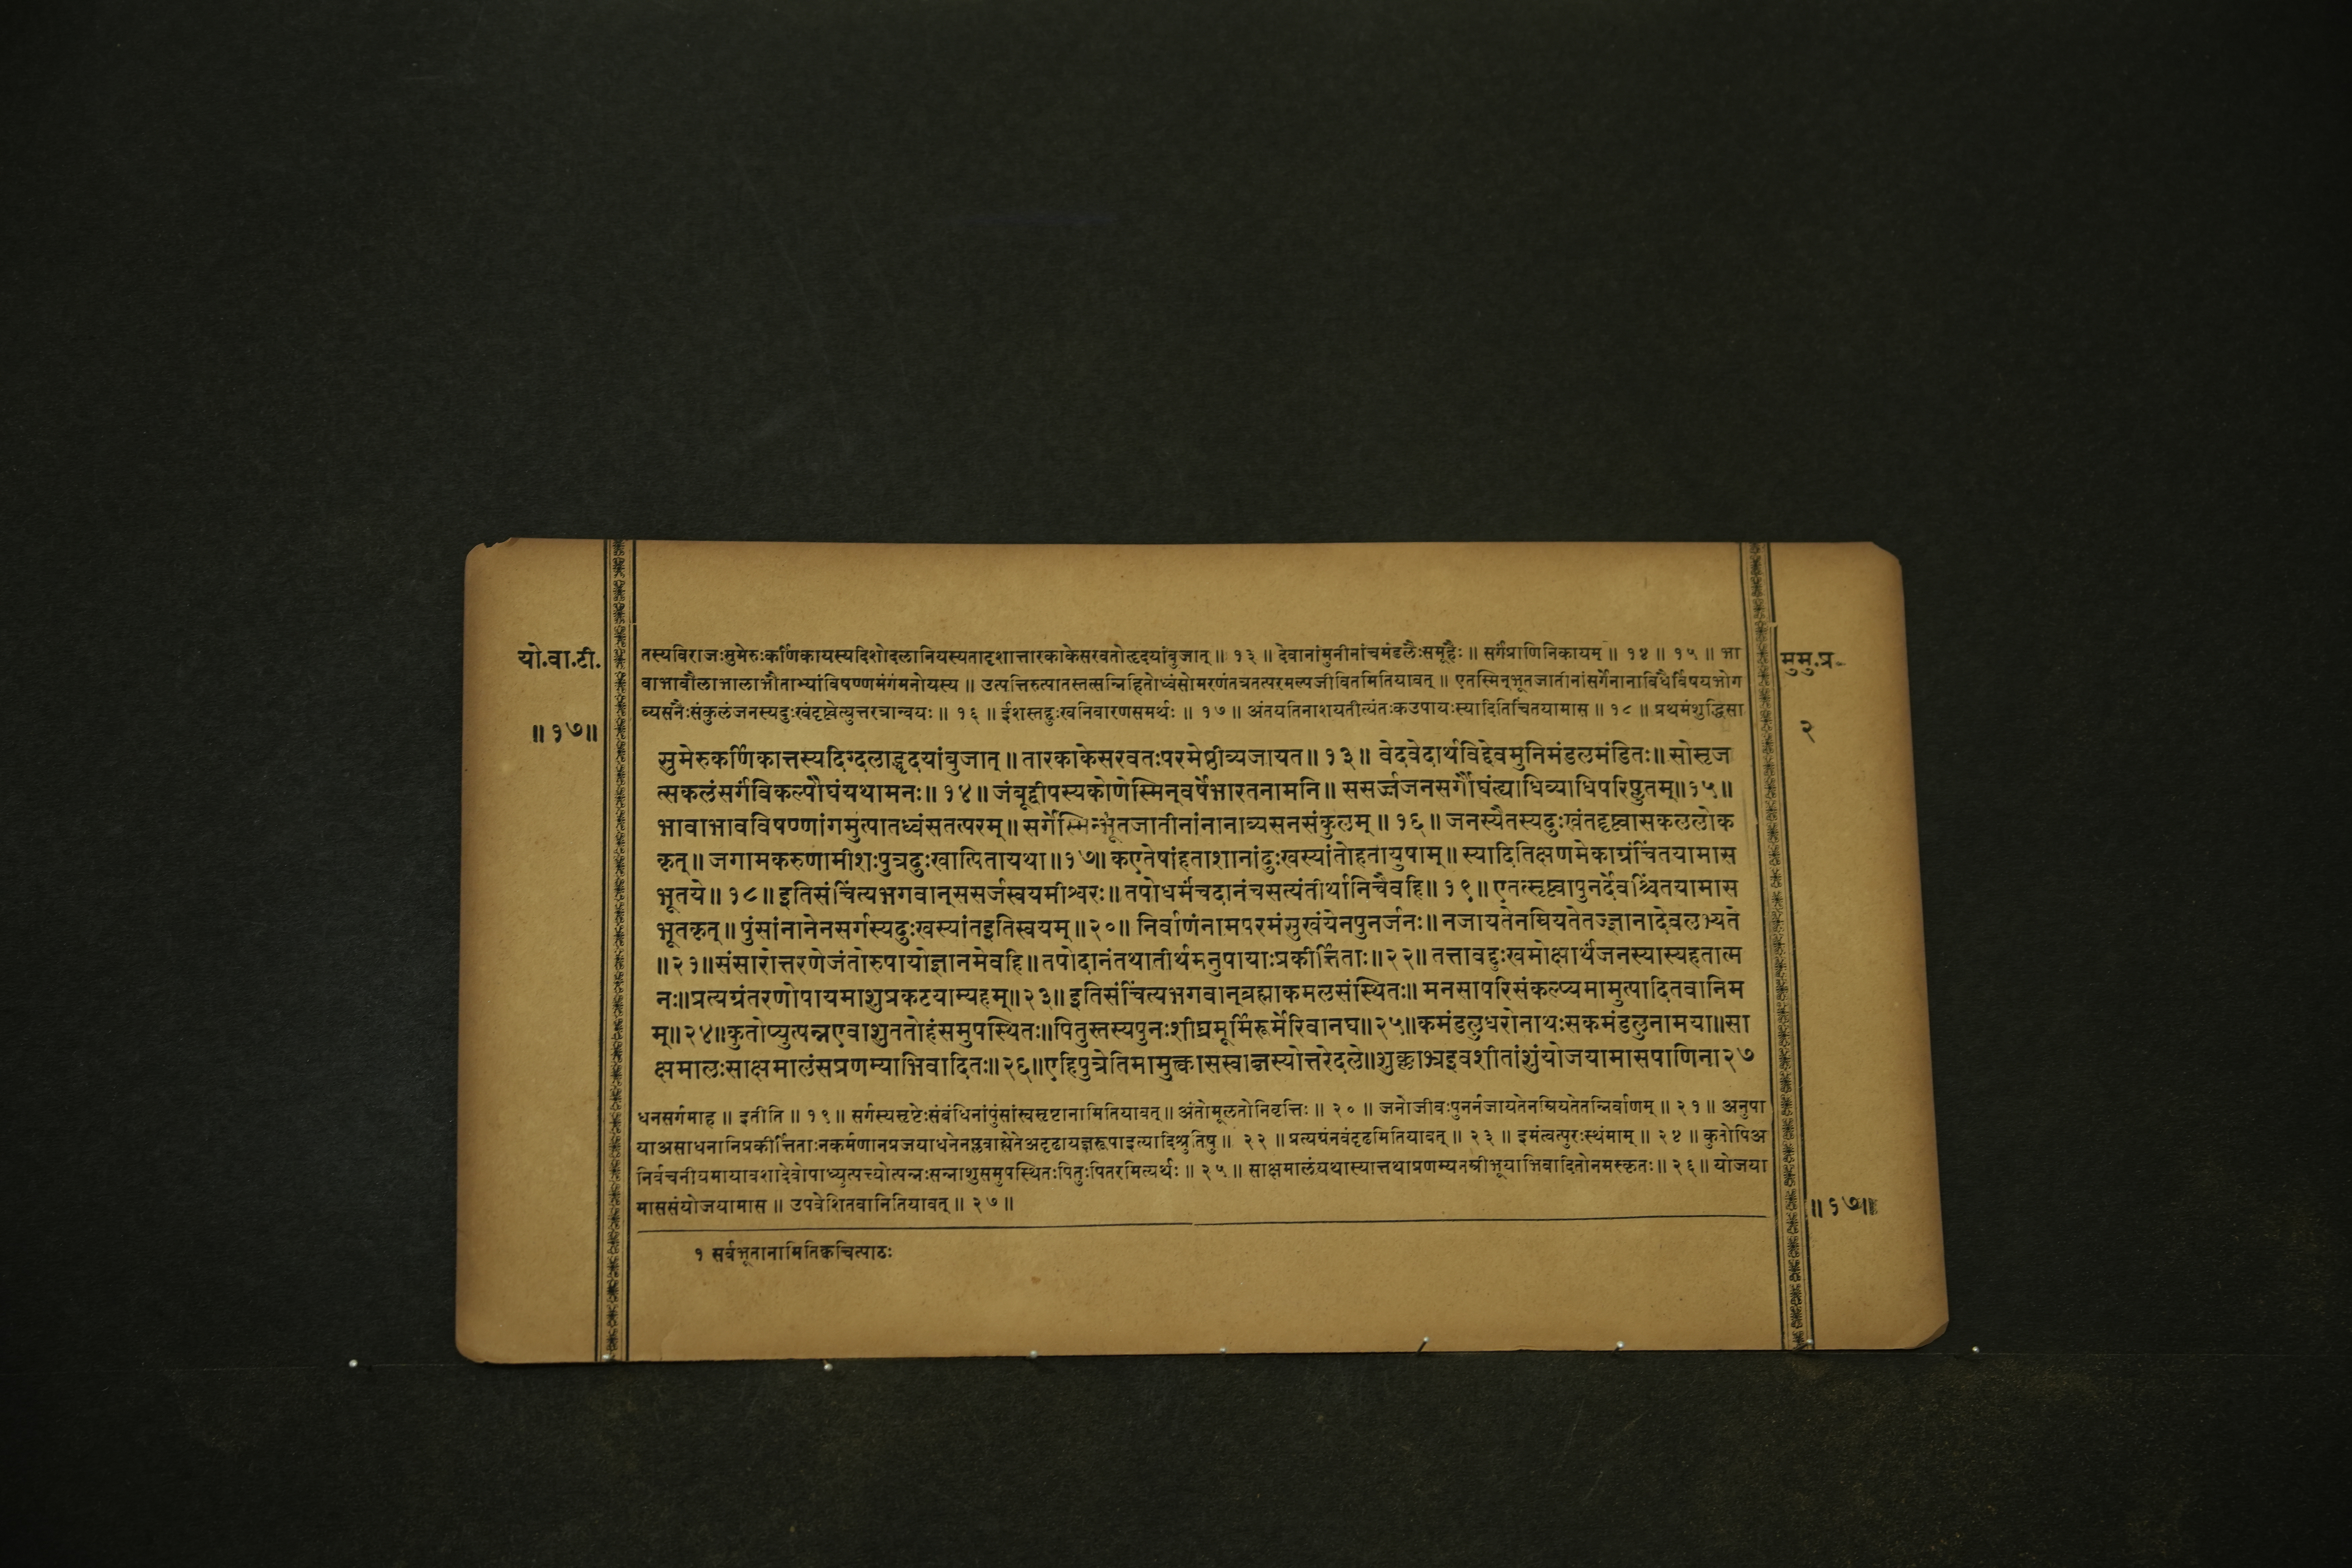 यो.वा.टी.
॥१७॥
तस्यविराजःसुमेरुःकर्णिकायस्यदिशोदलानियस्यतादृशात्तारकाकेसरवतोहृदयांबुजात् ॥ १३ ॥ देवानांमुनीनांचमंडलैःसमूहैः ॥ सर्गंप्राणिनिकायम् ॥ १४ ॥ १५ ॥ भा
वाभावौलाभालाभौताभ्यांविषण्णमंगंमनोयस्य ॥ उत्पत्तिरुत्पातस्तत्सन्निहितोध्वंसोमरणंतत्रतत्परमल्पजीवितमितियावत् ॥ एतस्मिन्भूतजातीनांसर्गेनानाविधैर्विषयभोग
व्यसनैःसंकुलंजनस्यदुःखंदृष्ट्वेत्युत्तरत्रान्वयः ॥ १६ ॥ ईशस्तद्दुःखनिवारणसमर्थः ॥ १७ ॥ अंतयतिनाशयतीत्यंतःकउपायःस्यादितिचिंतयामास ॥ १८ ॥ प्रथमंशुद्धिसा
सुमेरुकर्णिकात्तस्यदिग्दलाद्धृदयांबुजात् ॥ तारकाकेसरवतःपरमेष्ठीव्यजायत ॥ १३ ॥ वेदवेदार्थविद्देवमुनिमंडलमंडितः ॥ सोसृज
त्सकलंसर्गंविकल्पौघंयथामनः ॥ १४ ॥ जंबूद्वीपस्यकोणेस्मिन्वर्षेभारतनामनि ॥ ससर्ज्जजनसर्गौघंत्ह्याधिव्याधिपरिप्लुतम्॥१५॥
भावाभावविषण्णांगमुत्पातध्वंसतत्परम् ॥ सर्गेस्मिन्भूतजातीनांनानाव्यसनसंकुलम् ॥ १६ ॥ जनस्यैतस्यदुःखंतदृष्ट्वासकललोक
कृत् ॥ जगामकरुणामीशःपुत्रदुःखात्पितायथा ॥१७॥ कएतेषांहताशानांदुःखस्यांतोहतायुषाम् ॥ स्यादितिक्षणमेकाग्रंचिंतयामास
भूतये ॥ १८ ॥ इतिसंचिंत्यभगवान्ससर्जस्वयमीश्वरः ॥ तपोधर्मंचदानंचसत्यंतीर्थानिचैवहि ॥ १९ ॥ एतत्सृष्ट्वापुनर्देवश्चिंतयामास
भूतकृत् ॥ पुंसांनानेनसर्गस्यदुःखस्यांतइतिस्वयम् ॥२०॥ निर्वाणंनामपरमंसुखंयेनपुनर्जनः ॥ नजायतेनम्रियतेतज्ज्ञानादेवलभ्यते
॥२१॥संसारोत्तरणेजंतोरुपायोज्ञानमेवहि ॥ तपोदानंतथातीर्थमनुपायाःप्रकीर्त्तिताः ॥२२॥ तत्तावद्दुःखमोक्षार्थंजनस्यास्यहतात्म
नः॥प्रत्यग्रंतरणोपायमाशुप्रकटयाम्यहम्॥२३॥ इतिसंचिंत्यभगवान्ब्रह्माकमलसंस्थितः॥ मनसापरिसंकल्प्यमामुत्पादितवानिम
म्॥२४॥कुतोप्युत्पन्नएवाशुततोहंसमुपस्थितः॥पितुस्तस्यपुनःशीघ्रमूर्मिरूर्मेरिवानघ॥२५॥कमंडलुधरोनाथःसकमंडलुनामया॥सा
क्षमालःसाक्षमालंसप्रणम्याभिवादितः॥२६॥एहिपुत्रेतिमामुक्त्वासस्वाब्जस्योत्तरेदले॥शुक्लाभ्रइवशीतांशुंयोजयामासपाणिना२७
धनसर्गमाह ॥ इतीति ॥ १९ ॥ सर्गस्यसृष्टेःसंबंधिनांपुंसांस्वसृष्टानामितियावत् ॥ अंतोमूलतोनिवृत्तिः ॥ २० ॥ जनोजीवःपुनर्नजायतेनम्रियतेतन्निर्वाणम् ॥ २१ ॥ अनुपा
याअसाधनानिप्रकीर्त्तिताःनकर्मणानप्रजयाधनेनप्लवाह्येतेअदृढायज्ञरूपाइत्यादिश्रुतिषु ॥ २२ ॥ प्रत्यग्रंनवंदृढमितियावत् ॥ २३ ॥ इमंत्वत्पुरःस्थंमाम् ॥ २४ ॥ कुतोपिअ
निर्वचनीयमायावशादेवोपाध्युत्पत्त्योत्पन्नःसन्नाशुसमुपस्थितःपितुःपितरमित्यर्थः ॥ २५ ॥ साक्षमालंयथास्यात्तथाप्रणम्यनम्रीभूयाभिवादितोनमस्कृतः ॥ २६ ॥ योजया
माससंयोजयामास ॥ उपवेशितवानितियावत् ॥ २७ ॥
१ सर्वभूतानामितिक्वचित्पाठः
मुमु.प्र.
२
॥१७॥